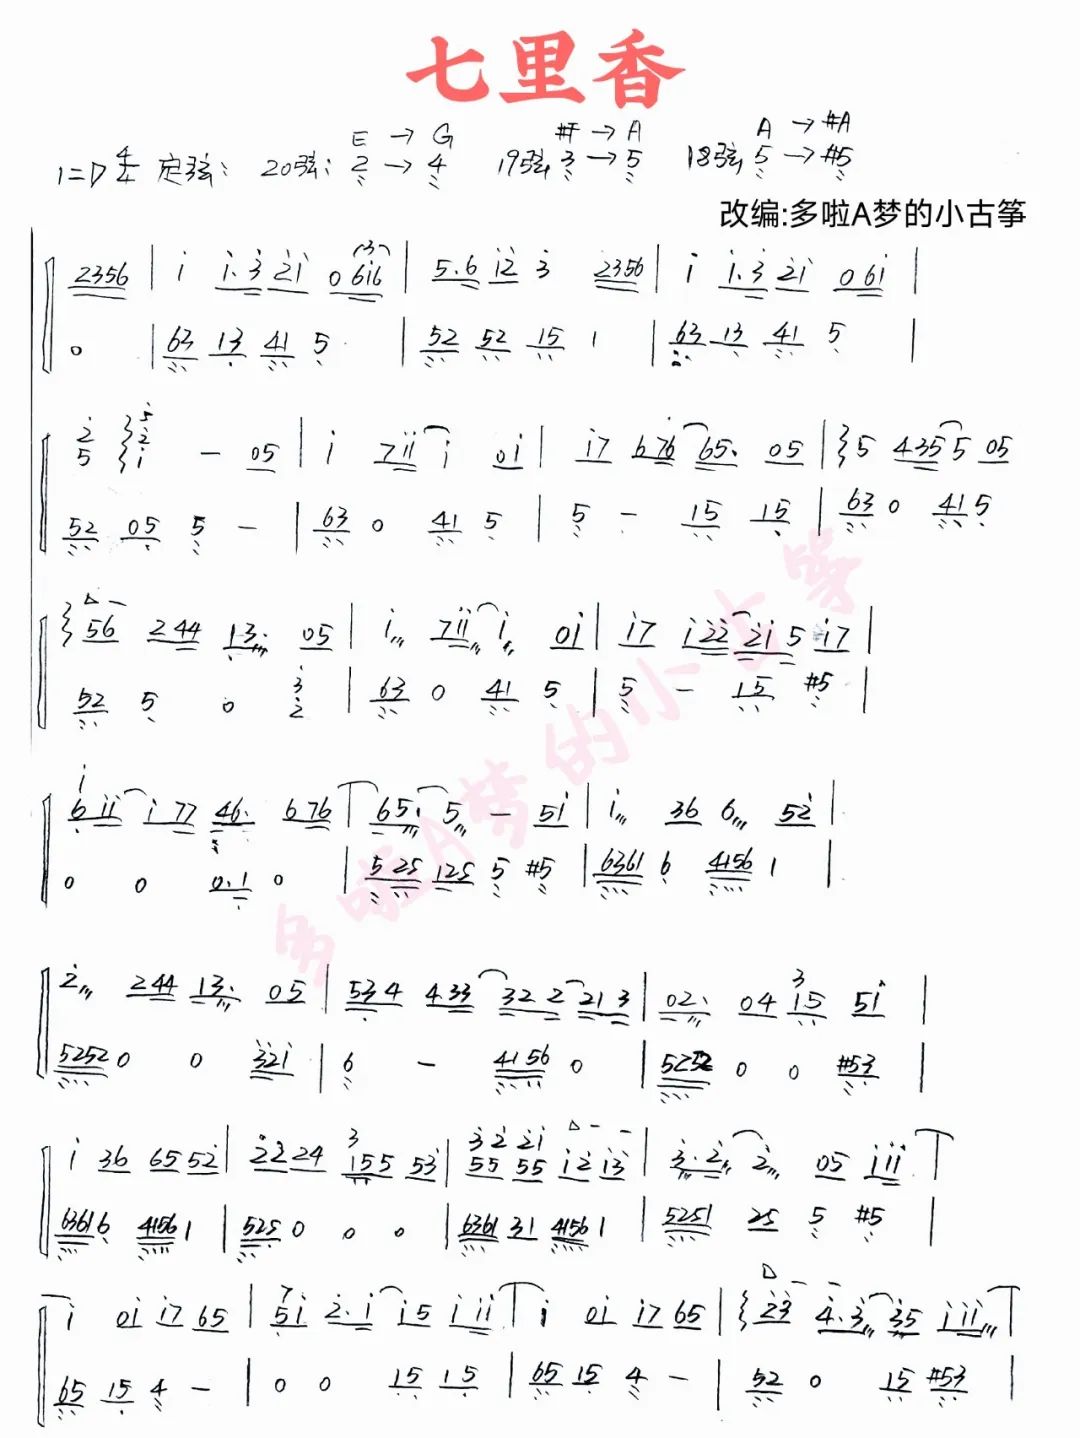 七里香
E → G #F → A A → #A
1=D 4/4 定弦: 20弦: 2 → 4 19弦 3 → 5 18弦 5 → #5
改编:多啦A梦的小古筝
2356 | i i.3 2i 0 6i6 | 5.6 i2 3 2356 | i i.3 2i 0 6i |
0 | 63 13 41 5 | 52 52 15 1 | 63 13 41 5 |
2 5 5 2 i - 05 | i 7ii i 0i | i7 676 65. 05 | 5 435 5 05
52 05 5 - | 63 0 41 5 | 5 - 15 15 | 63 0 41 5
56 244 13. 05 | i 7ii i 0i | i7 i22 2i 5 i7 |
52 5 0 3 2 | 63 0 41 5 | 5 - 15 #5 |
i 6 ii i 77 46. 676 | 65i 5 - 5i | i 36 6 52 |
0 0 0.1 0 | 525 125 5 #5 | 6361 6 4156 1 |
2 244 13. 05 | 534 433 322 213 | 02. 04 3 15 5i |
5252 0 0 32i | 6 - 4156 0 | 5252 0 0 #53 |
i 36 65 52 | 22 24 3 155 53 | 3 2 2i 55 55 i2 i3 | 3.2 2 05 iii
6361 6 4156 1 | 525 0 0 0 | 6361 31 4156 1 | 5251 25 5 #5 |
i 0i i7 65 | 7 5i 2.i i5 iii | i 0i i7 65 | 23 4.3 35 iii
65 15 4 - | 0 0 15 15 | 65 15 4 - | 52 0 15 #53 |
多啦A梦的小古筝